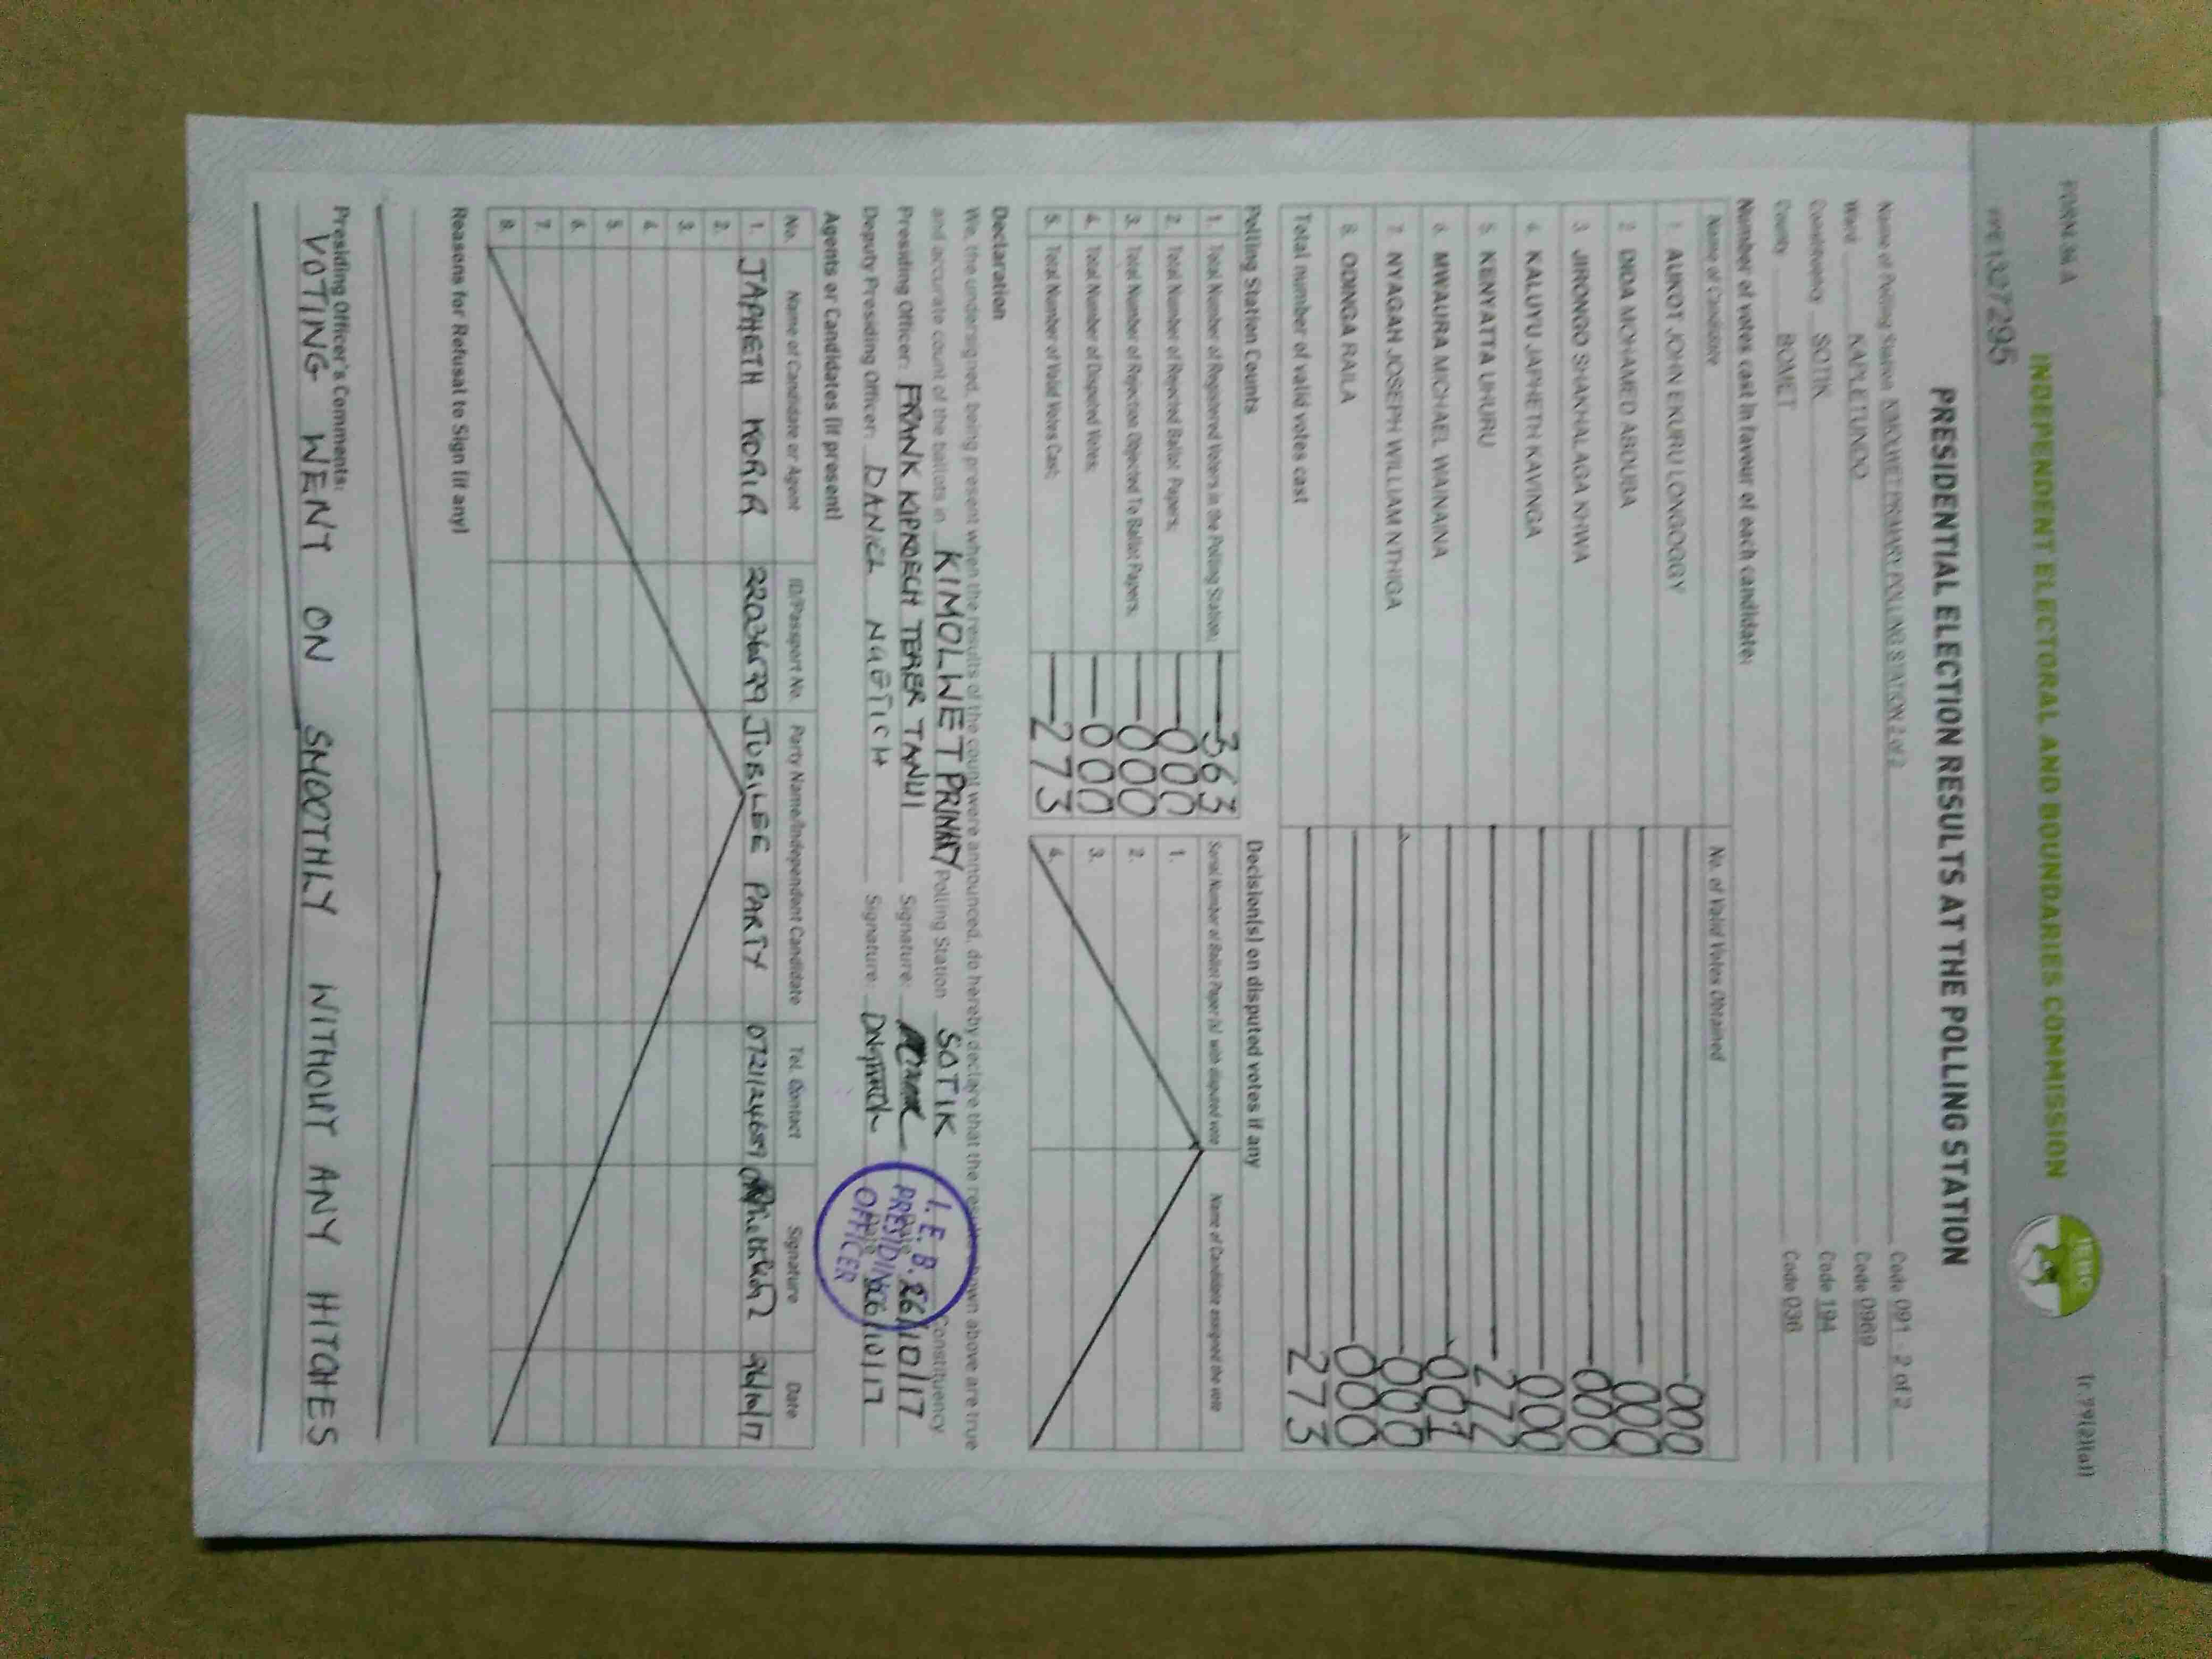 FORM 34 A
INDEPENDENT ELECTORAL AND BOUNDARIES COMMISSION
IEBC
(r.99(2)(a))
1327295
PRESIDENTIAL ELECTION RESULTS AT THE POLLING STATION
Name of Polling Station KIMOLWET PRIMARY POLLING STATION 2 of 2 Code 091 - 2 of 2
Ward KAPLETUNDO Code 0969
Constituency SOTIK Code 194
County BOMET Code 036
Number of votes cast in favour of each candidate:
Name of Candidate No. of Valid Votes Obtained
1. AUKOT JOHN EKURU LONGOGGY 000
2. DIDA MOHAMED ABDUBA 000
3. JIRONGO SHAKHALAGA KHWA 000
4. KALUYU JAPHETH KAVINGA 000
5. KENYATTA UHURU 272
6. MWAURA MICHAEL WAINAINA 001
7. NYAGAH JOSEPH WILLIAM NTHIGA 000
8. ODINGA RAILA 000
Total number of valid votes cast 273
Polling Station Counts
1. Total Number of Registered Voters in the Polling Station; 363
2. Total Number of Rejected Ballot Papers; 000
3. Total Number of Rejection Objected To Ballot Papers; 000
4. Total Number of Disputed Votes; 000
5. Total Number of Valid Votes Cast; 273
Decision(s) on disputed votes if any
Serial Number of Ballot Paper (s) with disputed vote Name of Candidate assigned the vote
1.
2.
3.
4.
Declaration
We, the undersigned, being present when the results of the count were announced, do hereby declare that the results shown above are true
and accurate count of the ballots in KIMOLWET PRIMARY Polling Station SOTIK Constituency
Presiding Officer: FRANK KIPKOECH TERER TANUI Signature: Date 26/10/17
Deputy Presiding Officer: DANIEL NGETICH Signature: DNgetich Date 26/10/17
I.E.B.
PRESIDING
OFFICER
Agents or Candidates (if present)
No. Name of Candidate or Agent ID/Passport No. Party Name/Independent Candidate Tel. Contact Signature Date
1. JAPHETH KORIR JUBILEE PARTY 26/10/17
2.
3.
4.
5.
6.
7.
8.
Reasons for Refusal to Sign (if any)
Presiding Officer's Comments:
VOTING WENT ON SMOOTHLY WITHOUT ANY HITCHES